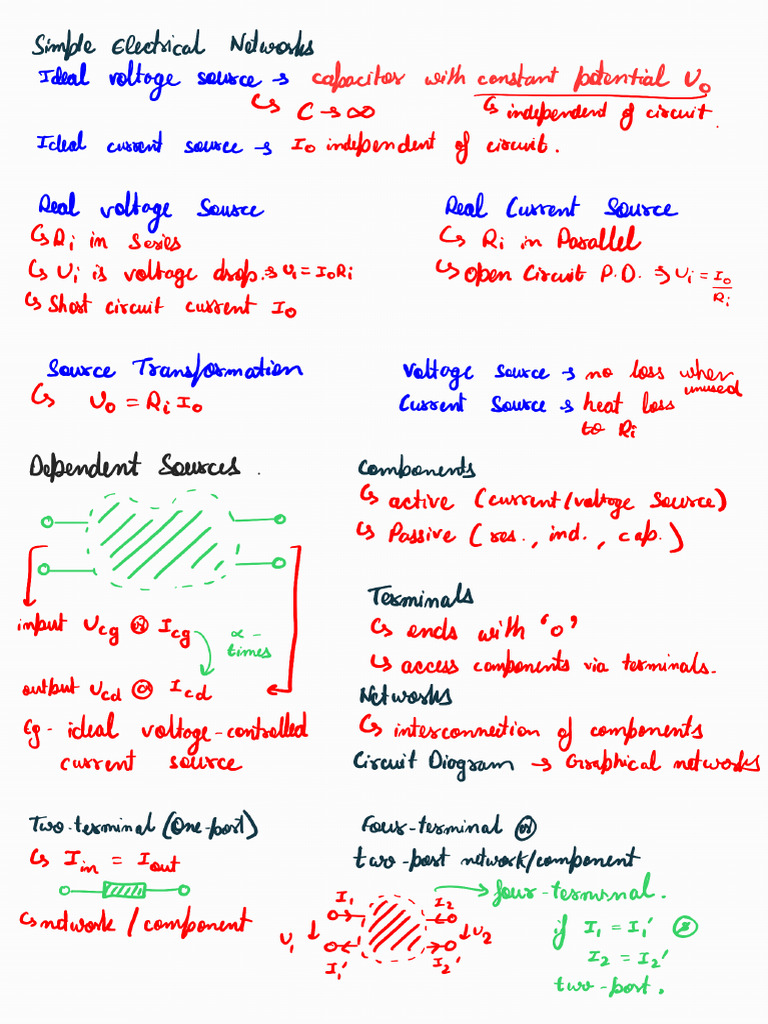 Simple Electrical Networks
Ideal voltage source → capacitor with constant potential U₀
↳ C → ∞
↳ independent of circuit.
Ideal current source → I₀ independent of circuit.
Real voltage Source
↳ Rᵢ in series
↳ Uᵢ is voltage drop. → Uᵢ = I₀Rᵢ
↳ Short circuit current I₀
Real Current Source
↳ Rᵢ in Parallel
↳ open Circuit P.D. → Uᵢ = I₀/Rᵢ
Source Transformation
↳ U₀ = Rᵢ I₀
Voltage source → no loss when unused
Current Source → heat loss
to Rᵢ
Dependent Sources.
input Ucg or Icg
α-
times
output Ucd or Icd
Eg - ideal voltage-controlled
current source
Components
↳ active (current/voltage source)
↳ Passive (res., ind., cap.)
Terminals
↳ ends with 'o'
↳ access components via terminals.
Networks
↳ interconnection of components
Circuit Diagram → Graphical networks
Two-terminal (One-port)
↳ Iin = Iout
↳ network / component
Four-terminal or
two-port network/component
→ four-terminal.
I₁
I₂
U₁
U₂
I₁'
I₂'
if I₁ = I₁' &
I₂ = I₂'
two-port.